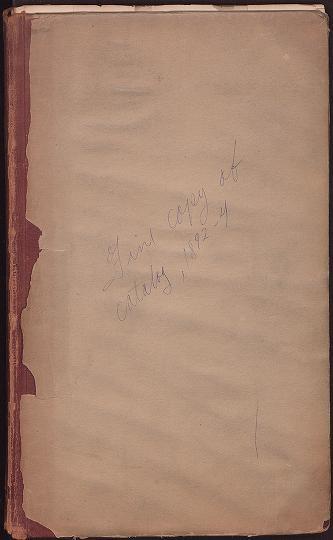 First copy of
catalog, 1892-4